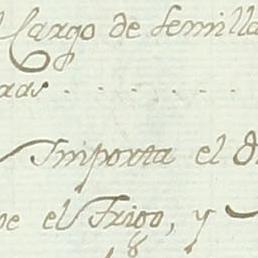 Cargo de semilla
ras . . . . . .
Importa el
el Trigo, y